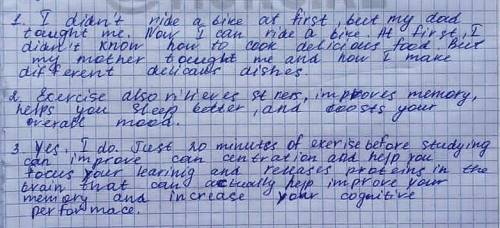 1. I didn't ride a bike at first, but my dad
tought me. Now I can ride a bike. At first, I
didn't know how to cook delicious food. But
my mother tought me and now I make
different delicaus dishes.
2. Exercise also n'rieves stress, improves memory,
helps you sleep better, and boosts your
overall mood.
3. Yes, I do. Just 20 minutes of exerise before studying
can improve can centration and help you
focus your learing and releases proteins in the
brain that can actually help improve your
memory and increase your cognitive
performace.